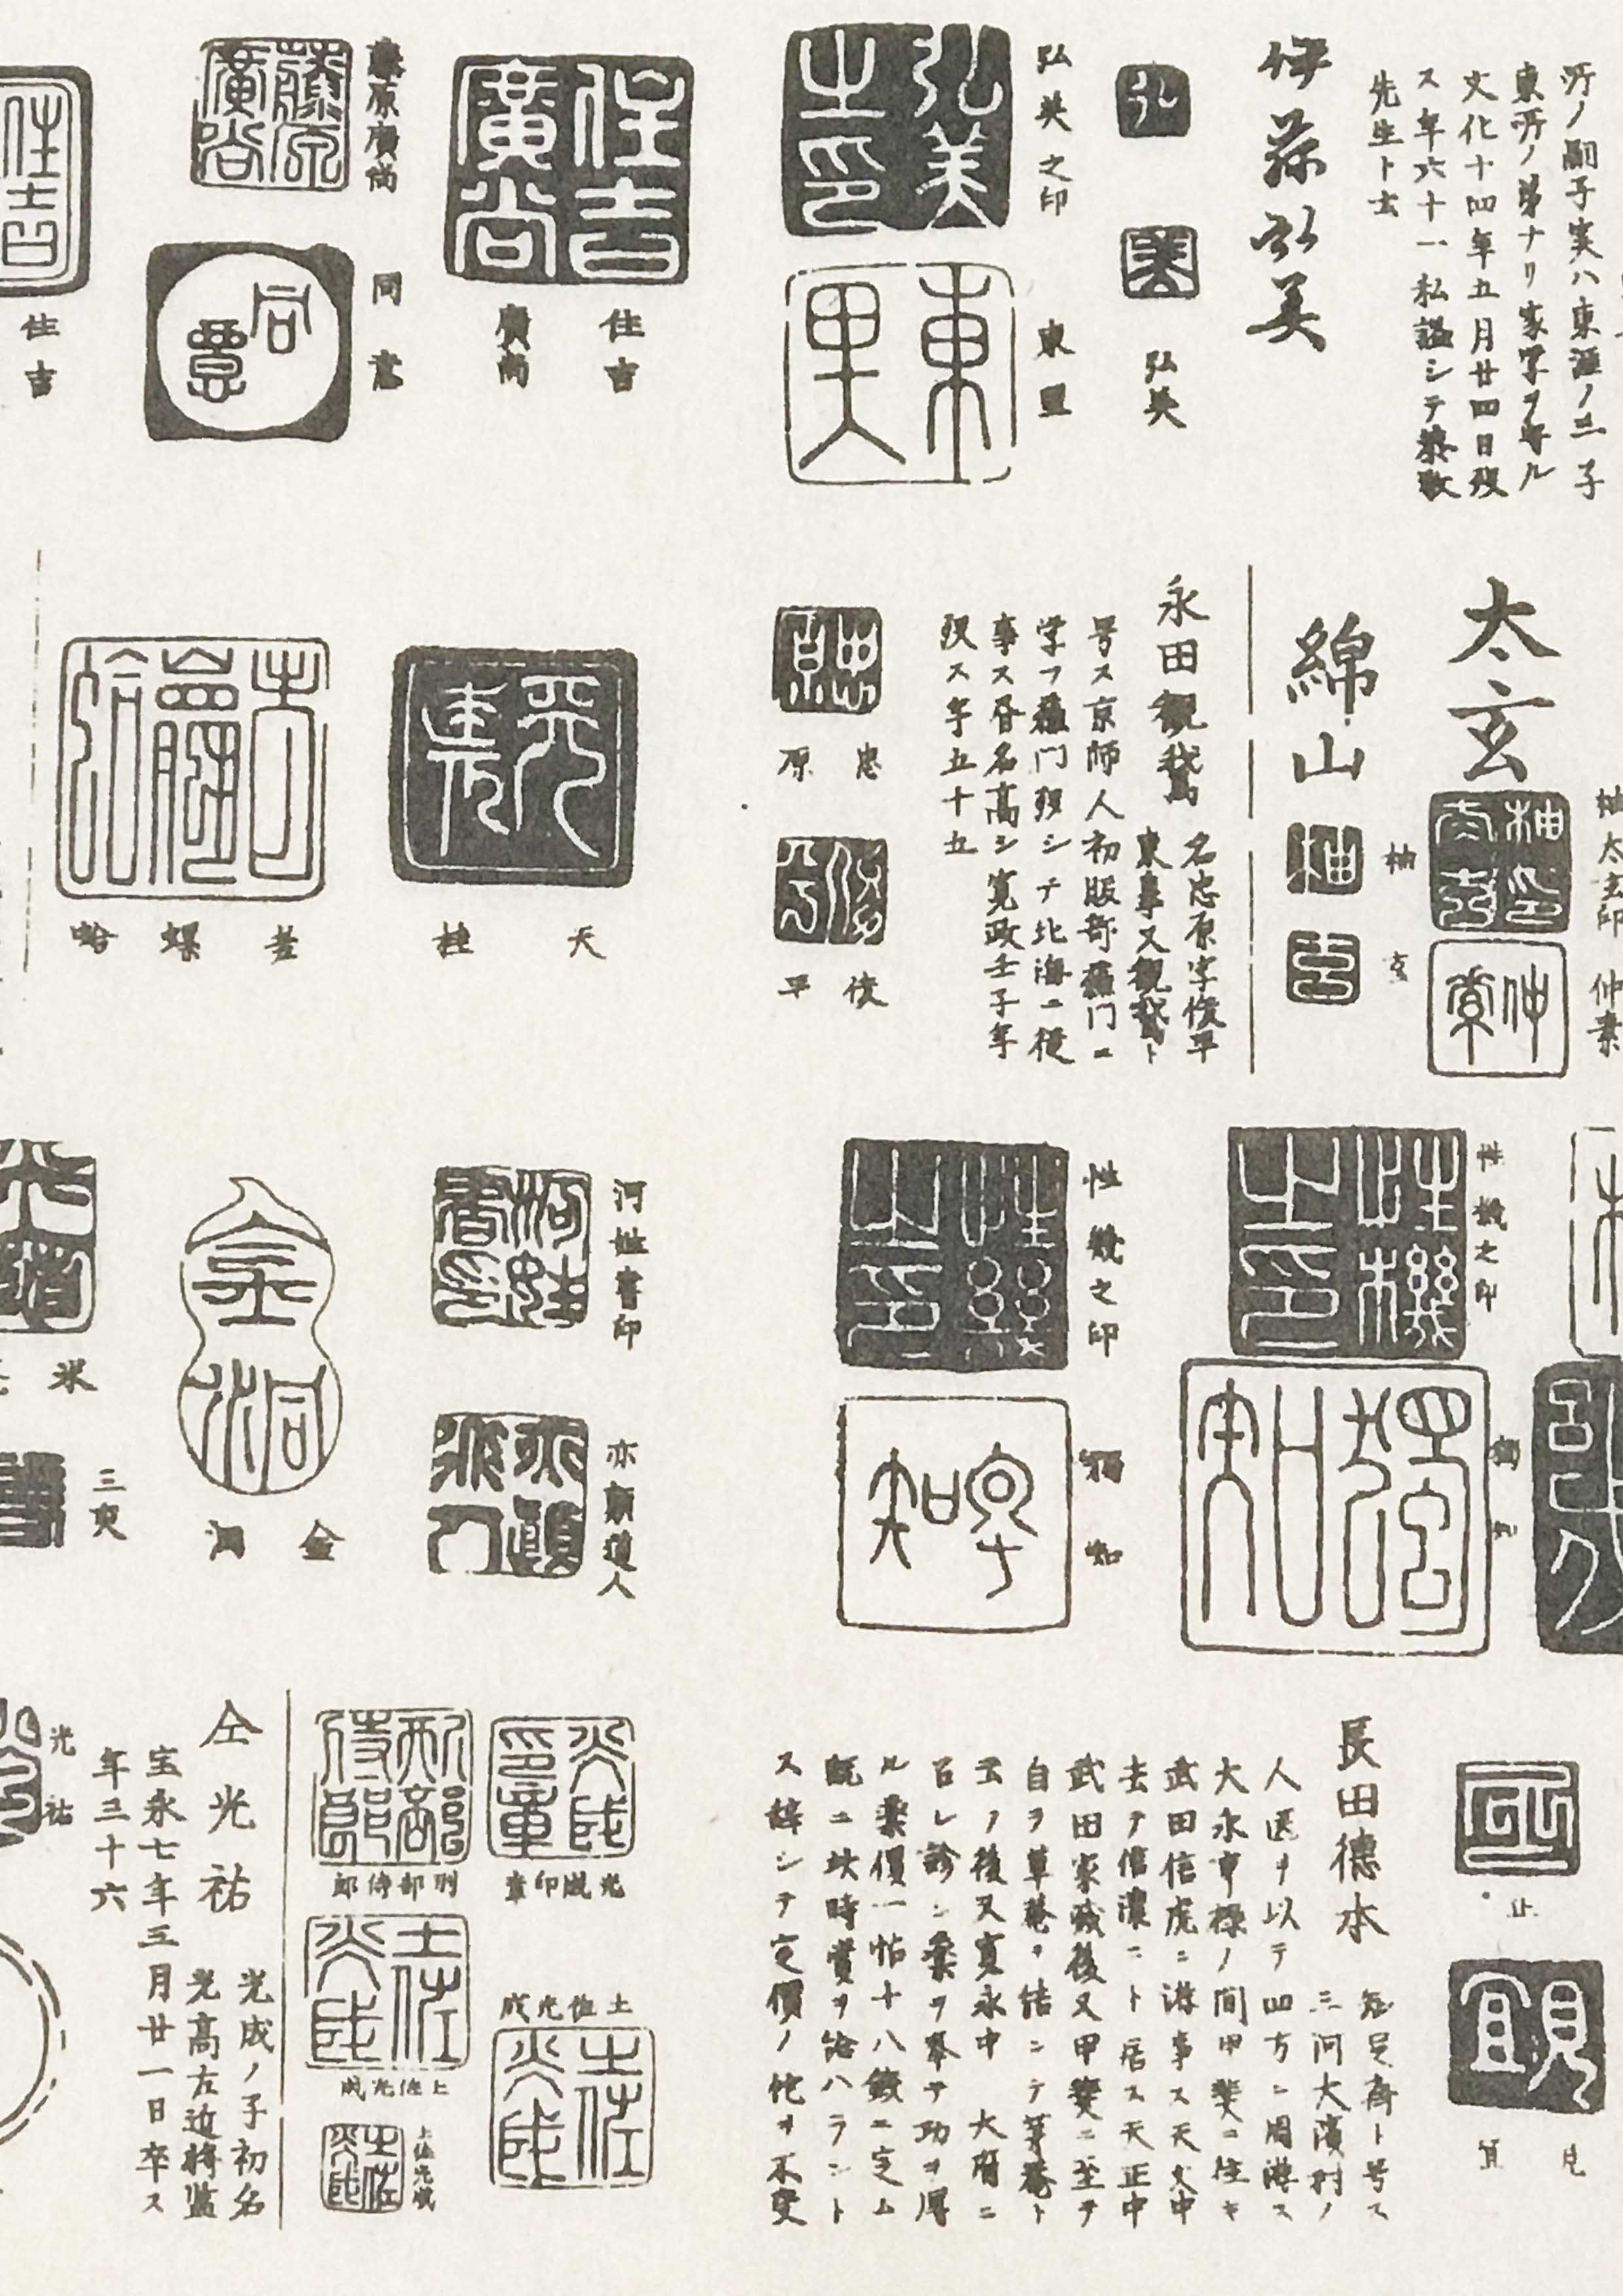 所ノ嗣子実ハ東涯ノ三子
東所ノ弟ナリ家学ヲ守ル
文化十四年五月廿四日歿
ス年六十一私諡シテ
先生ト云
伊藤弘美
弘
美
弘美
弘美之印
弘美之印
東里
東里
住吉廣尚
住吉
廣尚
藤原廣尚
藤原廣尚
同意
住吉
住吉
太玄
綿山
柚太玄印
仲素
仲素
柚
玄
永田觀鵞
名忠原字俊平
東皐又觀鵞ト
号ス京師人初
学フ
事ス書名高シ寛政壬子年
歿ス年五十五
忠原
俊平
性機之印
性機之印
性幾之印
河
書印
道人
金洞
金洞
三
長田德本
知足斉ト号ス
三河大濱村ノ
人医ヲ以テ四方ニ周游ス
大永享禄ノ間甲斐ニ住キ
武田信虎ニ游事ス天文中
去テ信濃ニト居ス天正中
武田家滅後又甲斐ニ至テ
自ラ草菴ヲ結ンテ茅菴ト
云ノ後又寛永中 大府ニ
召レ診シ薬ヲ奉テ功ヲ得
ル薬價一帖十八錢ニ定ム
既ニ此時賞ヲ給ハラント
ス辞シテ定價ノ他ヲ不受
止
見宜
光成印章
光成印章
刑部侍郎
刑部侍郎
土佐光成
土佐光成
土佐光成
土佐光成
土佐光成
土佐光成
仝光祐
光成ノ子初名
光高左近将監
宝永七年三月廿一日卒ス
年三十六
光祐